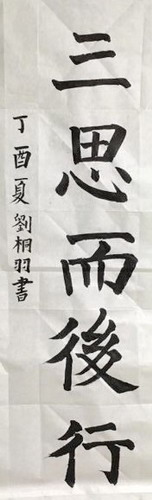 三思而後行
丁酉夏劉桐羽書